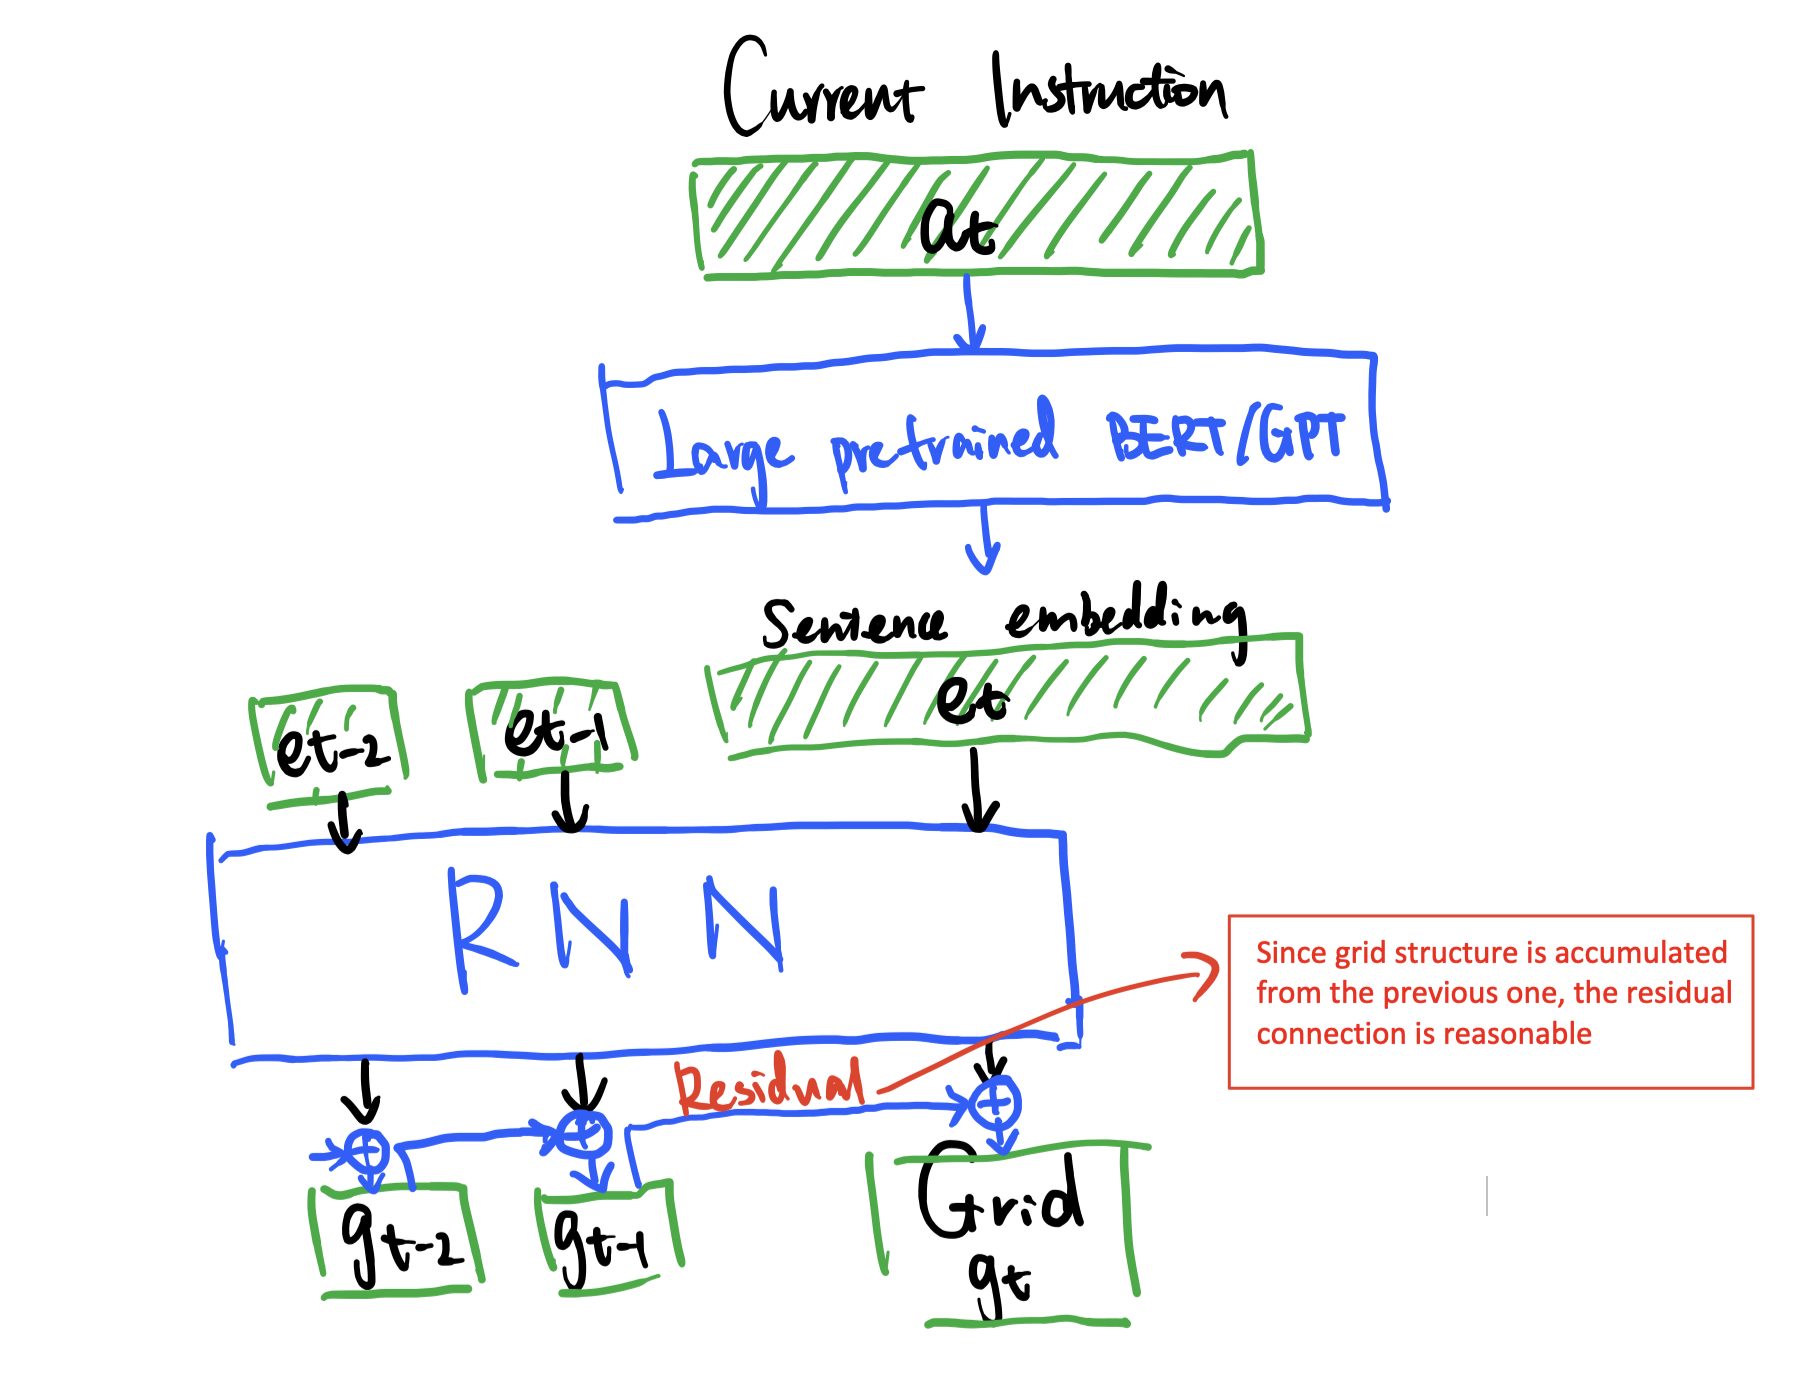 Current Instruction
at
Large pretrained BERT/GPT
Sentence embedding
et-2
et-1
et
RNN
Since grid structure is accumulated
from the previous one, the residual
connection is reasonable
Residual
gt-2
gt-1
Grid
gt